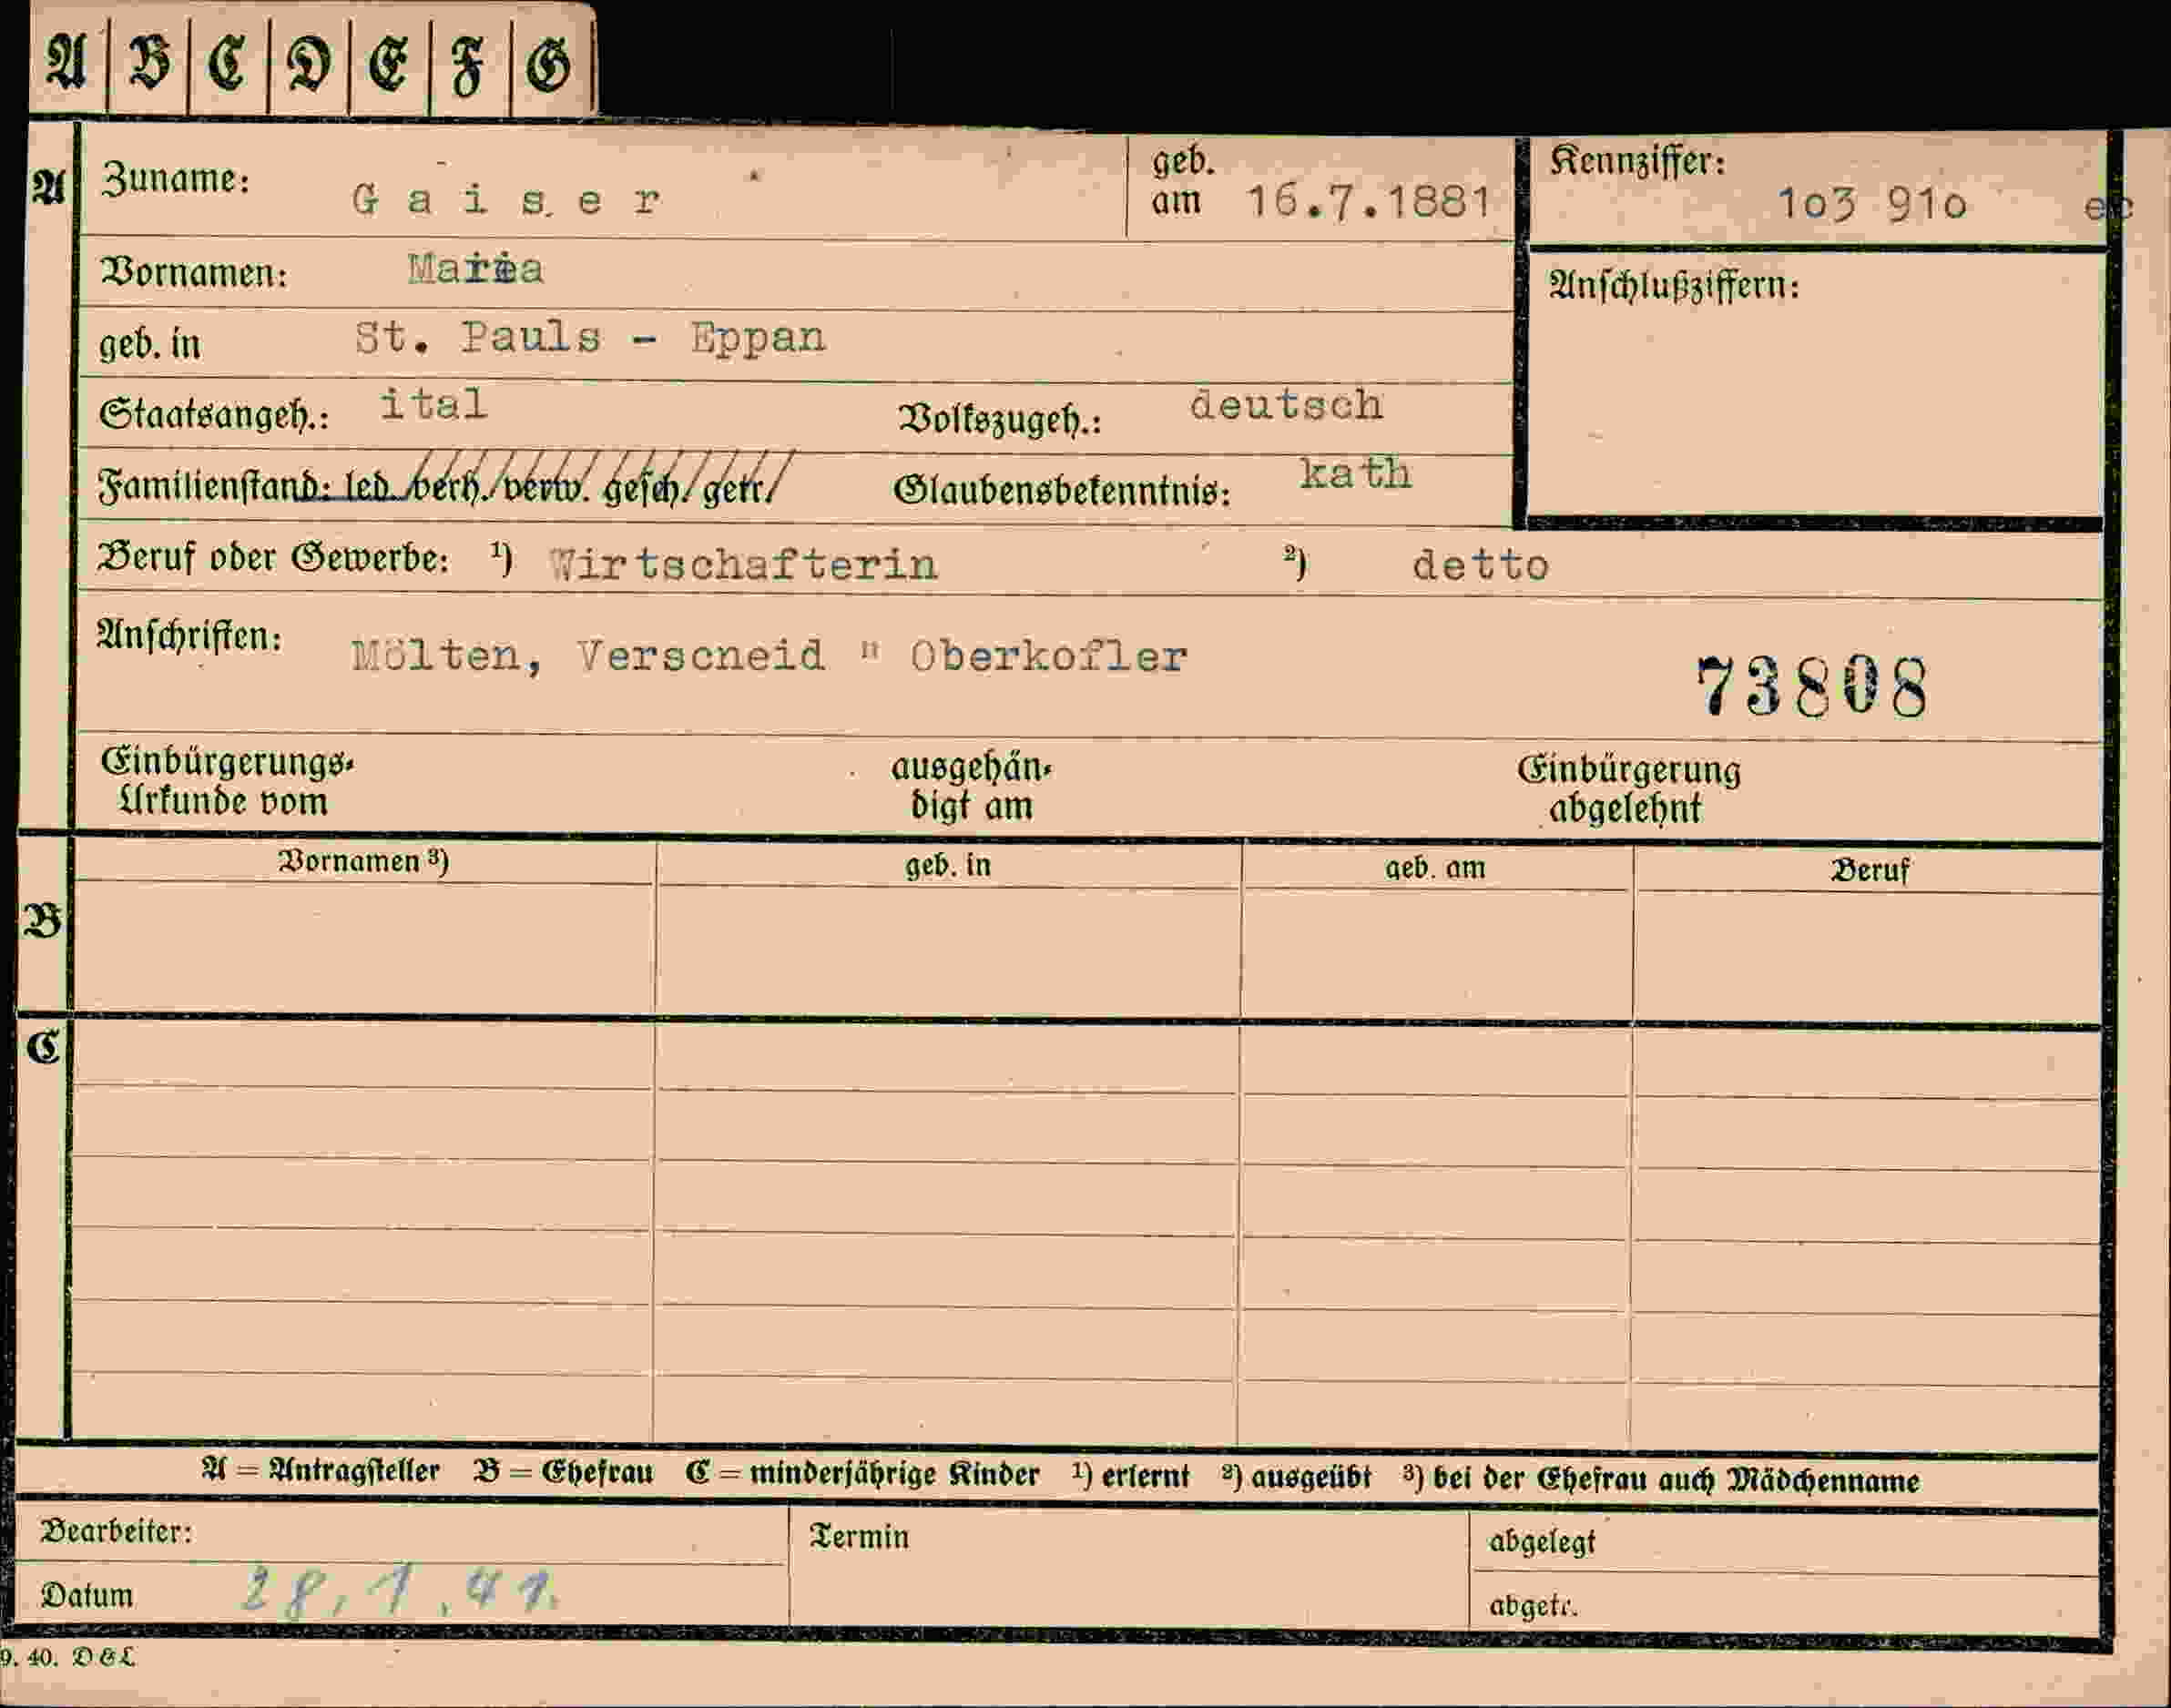 A B C D E F G
A Zuname: Gaiser geb. am 16.7.1881 Kennziffer: 1o3 91o
Vornamen: Maria Anschlußziffern:
geb. in St. Pauls - Eppan
Staatsangeh.: ital Volkszugeh.: deutsch
Familienstand: led. verh. verw. gesch. getr. Glaubensbekenntnis: kath
Beruf oder Gewerbe: ¹) Wirtschafterin ²) detto
Anschriften: Mölten, Verscneid " Oberkofler 73808
Einbürgerungs- ausgehän- Einbürgerung
Urkunde vom digt am abgelehnt
Vornamen ³) geb. in geb. am Beruf
B
C
A = Antragsteller B = Ehefrau C = minderjährige Kinder ¹) erlernt ²) ausgeübt ³) bei der Ehefrau auch Mädchenname
Bearbeiter: Termin abgelegt
Datum 28.1.41. abgetr.
9. 40. D & L